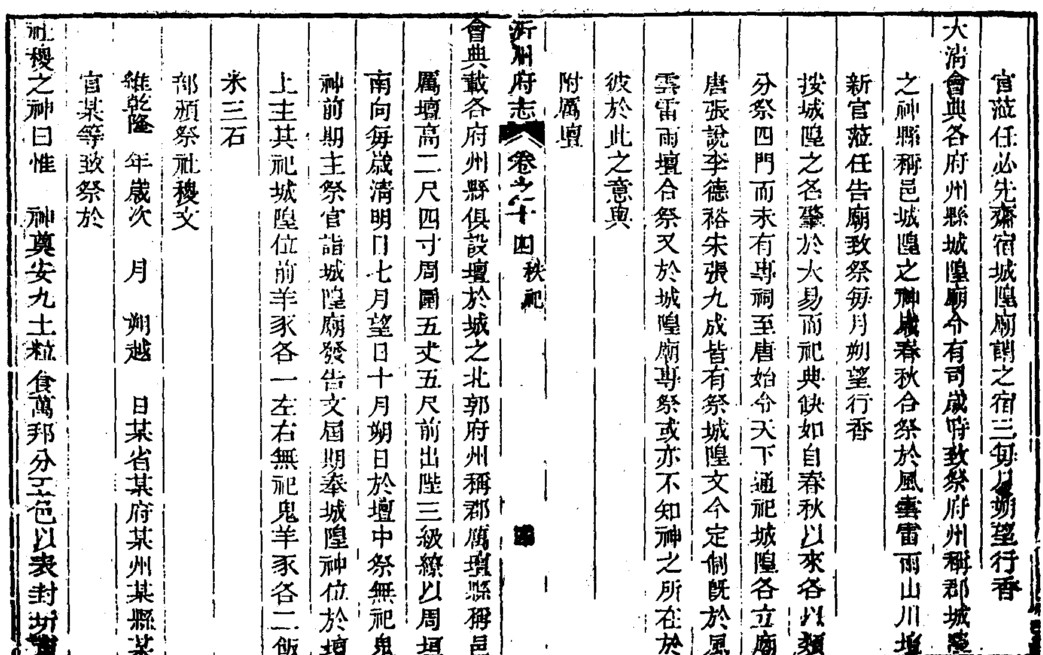 官蒞任必先齋宿城隍廟謂之宿三每月朔望行香
大淸會典各府州縣城隍廟令有司歲時致祭府州稱郡城隍
之神縣稱邑城隍之神歲春秋合祭於風雲雷雨山川壇
新官蒞任告廟致祭每月朔望行香
按城隍之名肇於大易而祀典缺如自春秋以來各以類
分祭四門而未有專祠至唐始令天下通祀城隍各立廟
唐張說李德裕宋張九成皆有祭城隍文今定制旣於風
雲雷雨壇合祭又於城隍廟專祭或亦不知神之所在於
彼於此之意與
附厲壇
沂州府志 卷之十四 秩祀
會典載各府州縣俱設壇於城之北郭府州稱郡厲壇縣稱邑
厲壇高二尺四寸周圍五丈五尺前出陛三級繚以周垣
南向每歲清明日七月望日十月朔日於壇中祭無祀鬼
神前期主祭官詣城隍廟發告文屆期奉城隍神位於壇
上主其祀城隍位前羊豕各一左右無祀鬼羊豕各二飯
米三石
部頒祭社稷文
維乾隆 年歲次 月 朔越 日某省某府某州某縣某
官某等致祭於
社稷之神曰惟 神奠安九土粒食萬邦分五色以表封圻